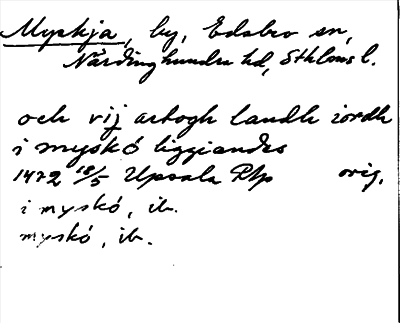 Myskja, by, Edsbro sn,
Närdinghundra hd, Sthlms l.
och vij artogh landh iordh
i myskó liggiandes
1472 18/5 Upsala Rlp orig.
i myskó, ib.
myskó, ib.